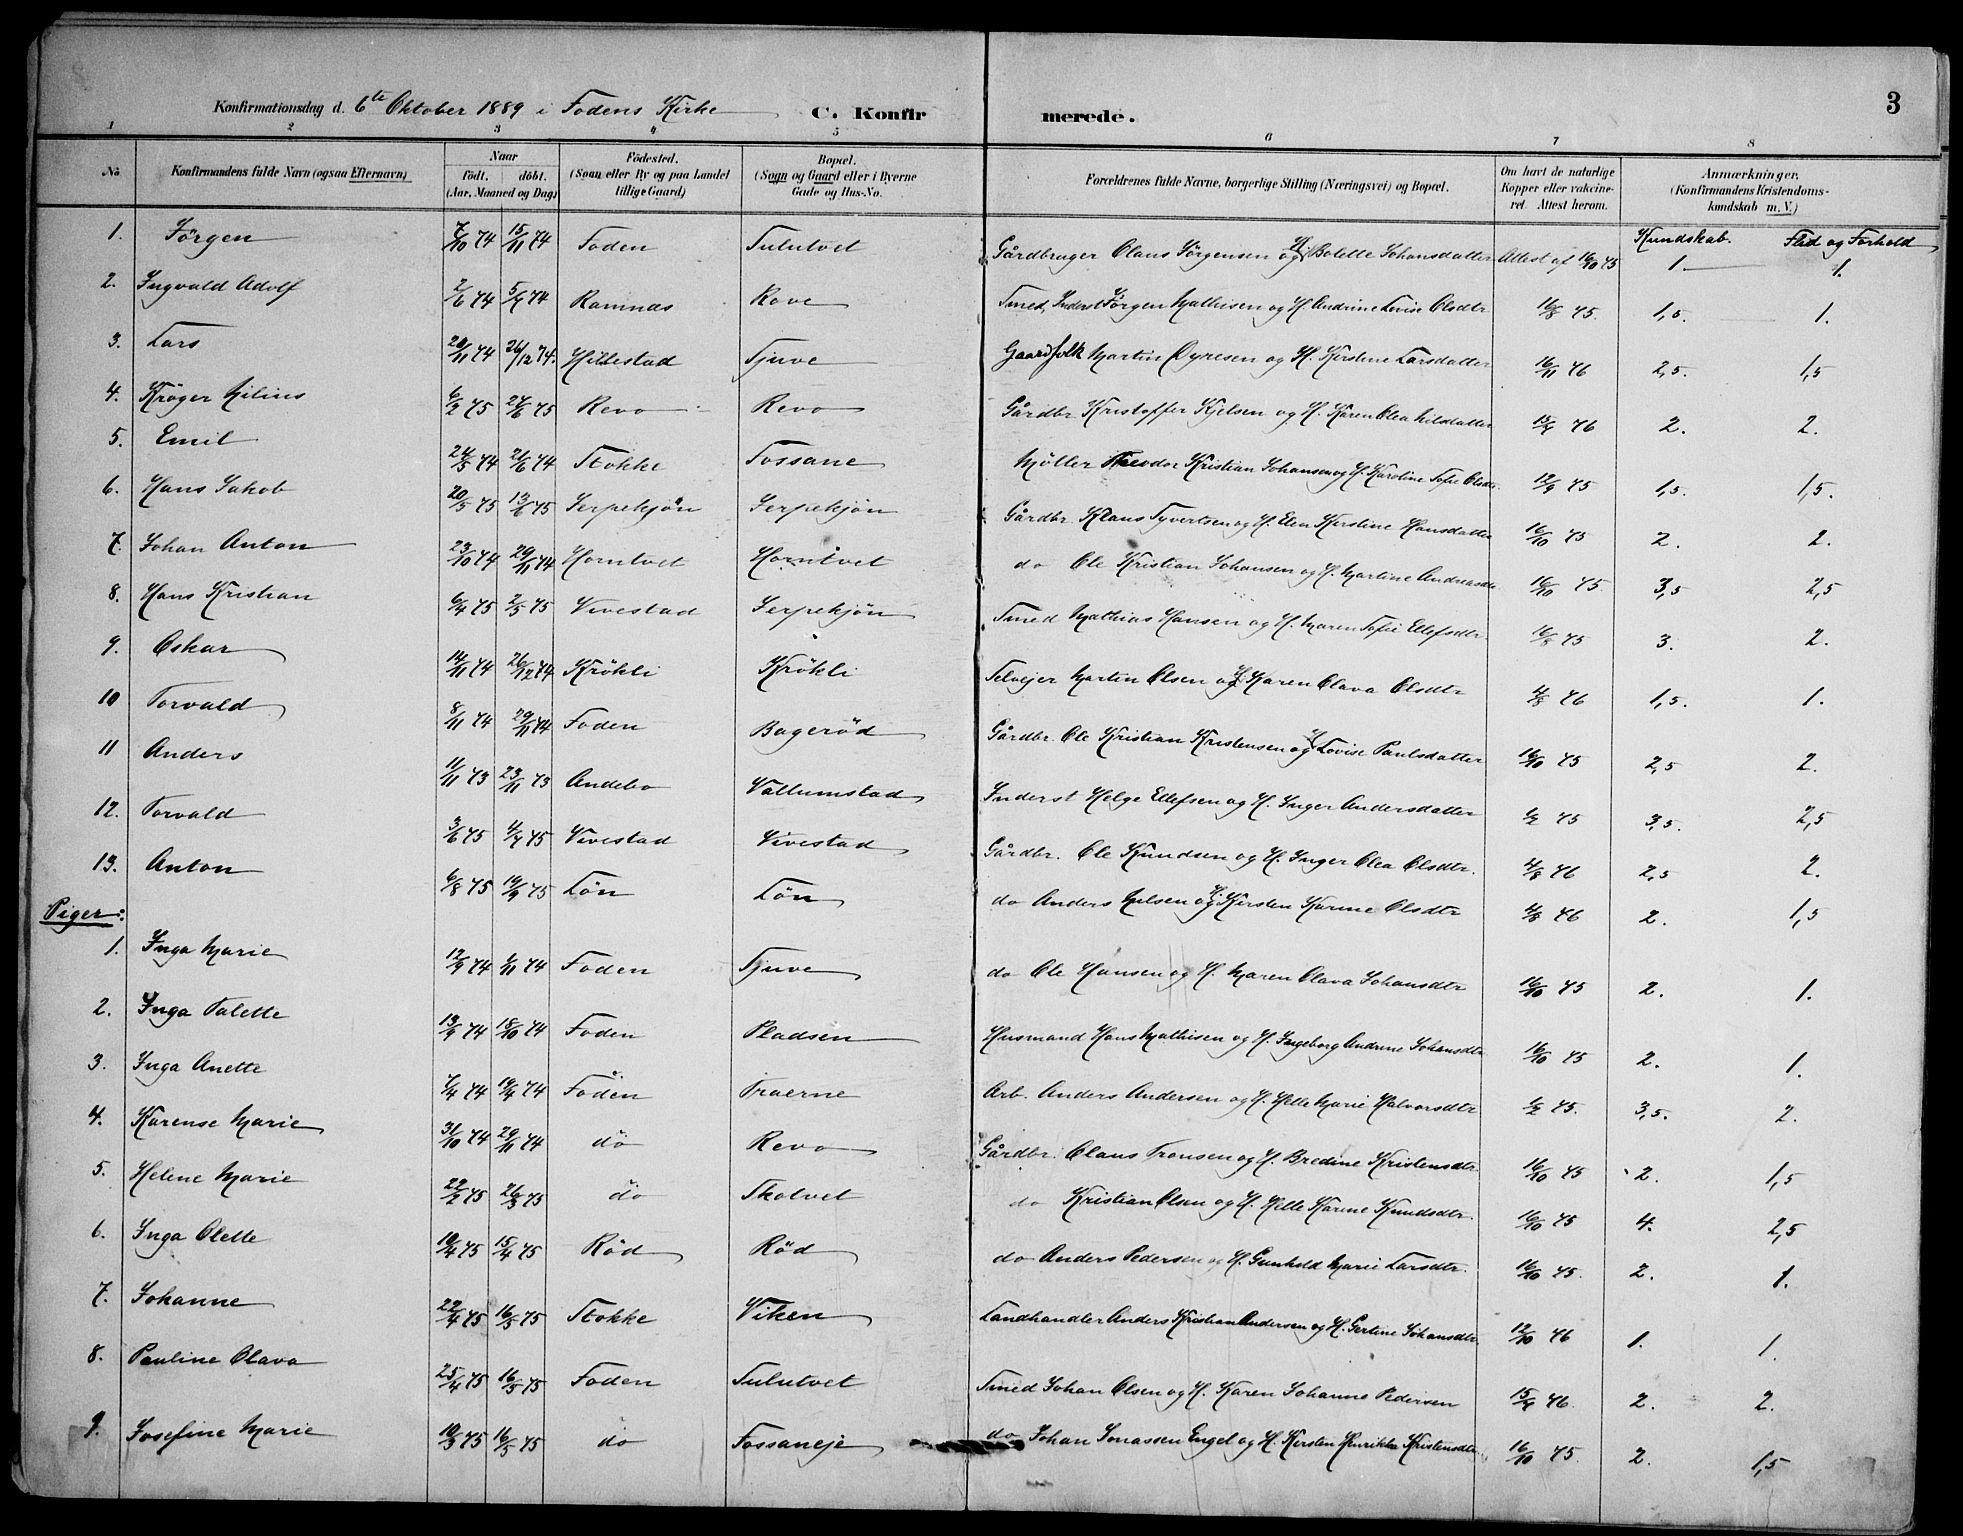 3
Konfirmationsdag d. 6te Oktober 1889 i Fodens Kirke C. Konfir merede.
1 2 3 4 5 6 7 8
No Konfirmandens fulde Navn (ogsaa Efternavn) Naar Födt. döbt. (Aar, Maaned og Dag) Födested. (Sogn eller By og paa Landet tillige Gaard) Bopæl. (Sogn og Gaard eller i Byerne Gade og Hus-No. Forældrenes fulde Navne, borgerlige Stilling (Næringsvei) og Bopæl. Om havt de naturlige Kopper eller vakcineret. Attest herom. Anmærkninger. (Konfirmandens Kristendomskundskab m. V.)
Kundskab. Flid og Forhold
1. Jörgen 7/10 74 15/11 74 Foden Tulutvet Gårdbruger Olaus Jörgensen og H. Bolette Johansdatter Attest af 16/10 75 1. 1.
2. Ingvald Adolf 2/6 74 5/7 74 Ramnæs Rove Smed, Inderst Jörgen Mathisen og H. Andrine Lovise Olsdtr 16/8 75. 1,5. 1.
3. Lars 20/11 74 26/12 74. Hillestad Tjuve Gaardfolk Martin Dyresen og H. Kirstine Larsdatter 16/11 76 2,5. 1,5
4. Kröger Nilius 6/2 75 27/6 75 Revo Revo Gårdbr. Kristoffer Kjelsen og H. Karen Olea Nilsdatter 15/9 76 2. 2.
5. Emil 24/5 74 21/6 74 Stokke Fossane Möller Theodor Kristian Johansen og H. Karoline Sofie Olsdtr. 12/9 75 1,5. 1,5.
6. Hans Jakob 20/5 75 13/6 75 Serpekjön Serpekjön Gårdbr. Klaus Syvertsen og H. Elen Kirstine Hansdatter 16/10 75 2. 2.
7. Johan Anton 23/10 74 29/11 74 Horntvet Horntvet do Ole Kristian Johansen og H. Martine Andreasdtr 16/10 75 3,5 2,5
8. Hans Kristian 6/4 75 2/5 75 Vivestad Serpekjön Smed Mathias Hansen og H. Maren Sofie Ellefsdtr. 16/8 75 3. 2.
9. Oskar 14/11 74 26/12 74 Krökli Krökli Selvejer Martin Olsen og H. Karen Olava Olsdtr 4/8 76 1,5. 1.
10 Torvald 8/11 74 29/11 74 Foden Bageröd Gårdbr. Ole Kristian Kristensen og H. Lovise Paulsdatter 16/10 75 2,5 2.
11 Anders 11/11 73 23/11 73 Andebo Vallumstad Inderst Helge Ellefsen og H. Inger Andersdatter 1/2 75 3,5. 2,5
12. Torvald 3/6 75 4/7 75 Vivestad Vivestad Gårdbr. Ole Knudsen og H. Inger Olea Olsdtr. 4/8 76 2,5 2.
13. Anton 6/8 75 19/9 75 Lön Lön do Anders Nilsen og H. Kirsten Karine Olsdtr 4/8 76 2. 1,5
Piger:
1. Inga Marie 12/9 74 1/11 74 Foden Tjuve do Ole Hansen og H. Maren Olava Johansdtr 16/10 75 2. 1.
2. Inga Talette 13/9 74 18/10 74 Foden Pladsen Husmand Hans Mathisen og H. Ingeborg Andrine Johansdtr 16/10 75 2. 1.
3. Inga Anette 7/4 74 19/4 74 Foden Traerne Arb. Anders Andersen og H. Helle Marie Halvorsdtr 1/2 75. 3,5. 2.
4. Karense Marie 31/10 74 29/11 74 do Revo Gårdbr. Olaus Tronsen og H. Bredine Kristensdtr 16/10 75 2. 1,5
5. Helene Marie 22/2 75 26/3 75 do Skotvet do Kristian Olsen og H. Helle Karine Knudsdtr. 16/10 75 4. 2,5
6. Inga Olette 10/4 75 15/4 75 Röd Röd do Anders Pedersen og H. Gunhild Marie Larsdtr. 16/10 75. 2. 1.
7. Johanne 22/4 75 16/5 75 Stokke Viken Landhandler Anders Kristian Andersen og H. Gertine Johansdtr. 12/10 76 1. 1.
8. Pauline Olava 25/4 75 16/5 75 Foden Tulutvet Smed Johan Olsen og H. Karen Johanne Pedersen 15/9 76. 2. 2.
9. Josefine Marie 10/3 75 16/5 75 do Fossaneje do Johan Jonassen Engel og H. Kirsten Henrikka Kristensdtr. 16/10 75. 2. 1,5